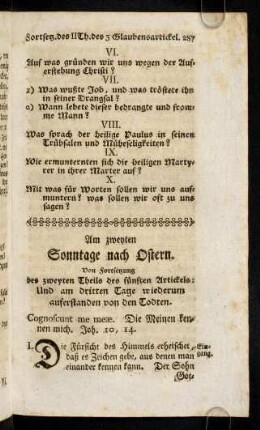 Fortsetz. des II Th. des 3 Glaubensartickel. 287
VI.
Auf was gründen wir uns wegen der Auf-
erstehung Christi?
VII.
1) Was wußte Job, und was tröstete ihn
in seiner Drangsal?
2) Wann lebete dieser bedrangte und from-
me Mann?
VIII.
Was sprach der heilige Paulus in seinen
Trübsalen und Mühseligkeiten?
IX.
Wie ermunternten sich die heiligen Marty-
rer in ihrer Marter auf?
X.
Mit was für Worten sollen wir uns auf-
muntern? was sollen wir oft zu uns
sagen?
Am zweyten
Sonntage nach Ostern.
Von Fortsetzung
des zweyten Theils des fünften Artikels:
Und am dritten Tage wiederum
auferstanden von den Todten.
Cognoscunt me meæ. Die Meinen ken-
nen mich. Joh. 10, 14.
I. Die Fürsicht des Himmels erheischet, Ein-
daß es Zeichen gebe, aus denen man gang.
einander kennen kann. Der Sohn
Got-